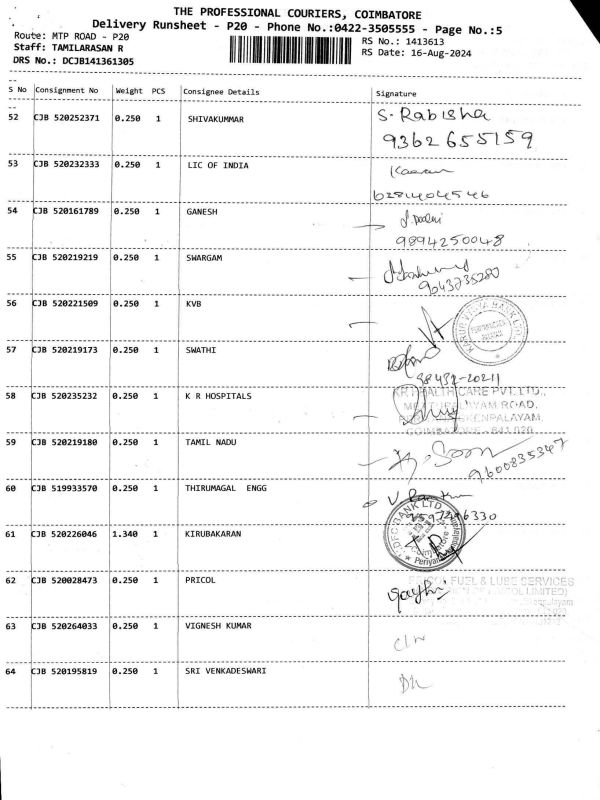 THE PROFESSIONAL COURIERS, COIMBATORE
Delivery Runsheet - P20 - Phone No.:0422-3505555 - Page No.:5
Route: MTP ROAD - P20
RS No.: 1413613
Staff: TAMILARASAN R
RS Date: 16-Aug-2024
DRS No.: DCJB141361305
S No Consignment No Weight PCS Consignee Details Signature
52 CJB 520252371 0.250 1 SHIVAKUMMAR S. Rabisha
9362655159
53 CJB 520232333 0.250 1 LIC OF INDIA
6281404546
54 CJB 520161789 0.250 1 GANESH
9894250048
55 CJB 520219219 0.250 1 SWARGAM
9643735280
56 CJB 520221509 0.250 1 KVB
57 CJB 520219173 0.250 1 SWATHI
98432-20211
58 CJB 520235232 0.250 1 K R HOSPITALS
HEALTH CARE PVT. LTD.,
ROAD,
COIMBATORE - 641 020
59 CJB 520219180 0.250 1 TAMIL NADU
9600835347
60 CJB 519933570 0.250 1 THIRUMAGAL ENGG
61 CJB 520226046 1.340 1 KIRUBAKARAN
BANK LTD
Coimbatore
62 CJB 520028473 0.250 1 PRICOL
FUEL & LUBE SERVICES
LIMITED)
63 CJB 520264033 0.250 1 VIGNESH KUMAR
64 CJB 520195819 0.250 1 SRI VENKADESWARI